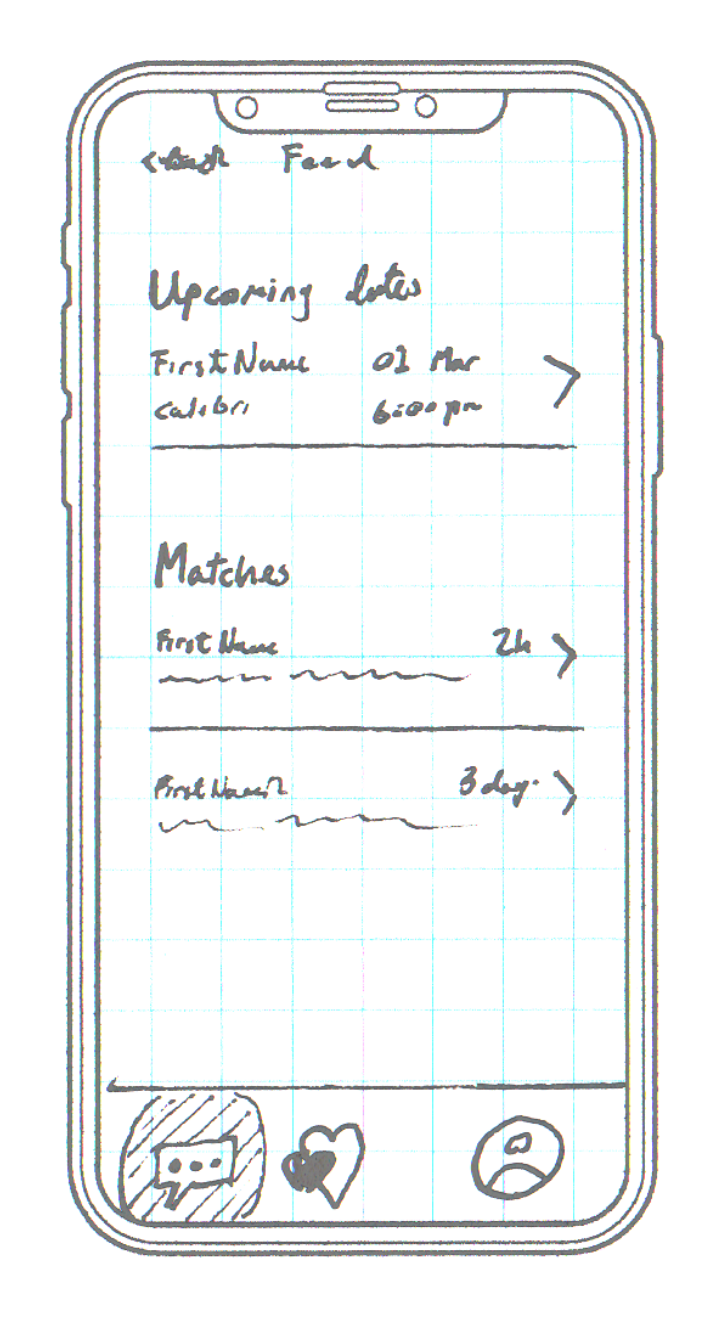 < Back Feed
Upcoming dates
First Name 01 Mar
Calibri 6:00 pm
Matches
First Name 2h
First Name 3 day